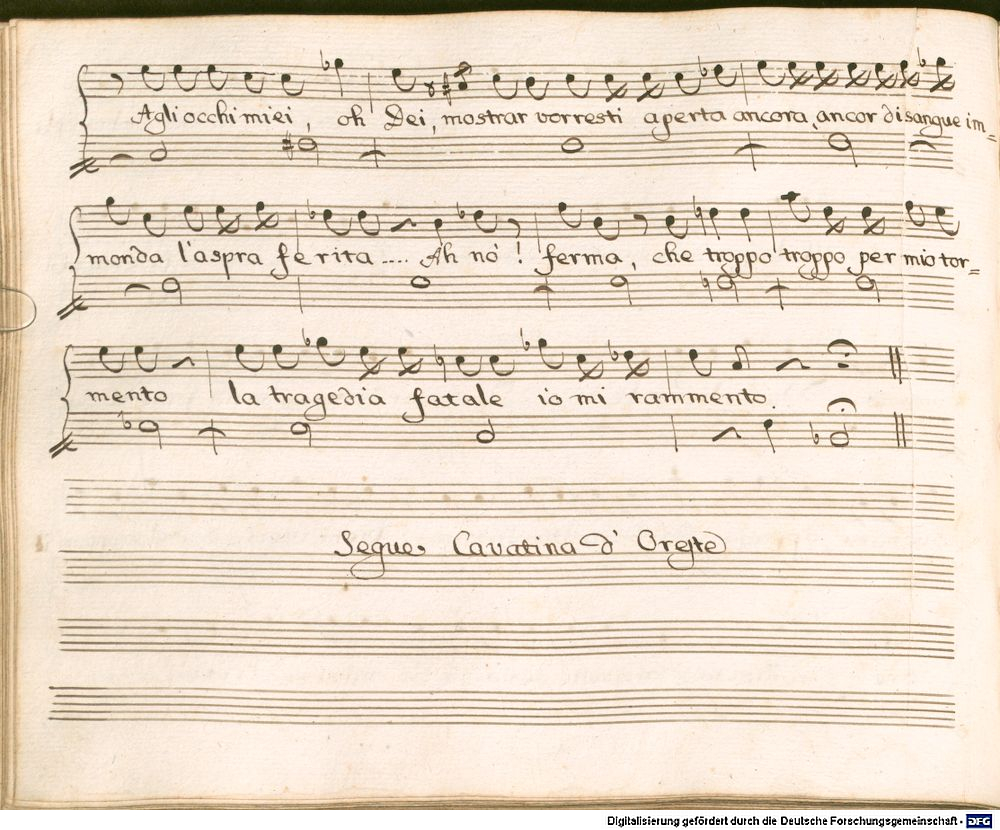 Agli occhi miei, oh Dei, mostrar vorresti aperta ancora, ancor di sangue im=
monda l'aspra ferita.... Ah nò! ferma, che troppo troppo per mio tor=
mento la tragedia fatale io mi rammento.
Segue Cavatina d'Oreste
Digitalisierung gefördert durch die Deutsche Forschungsgemeinschaft - DFG